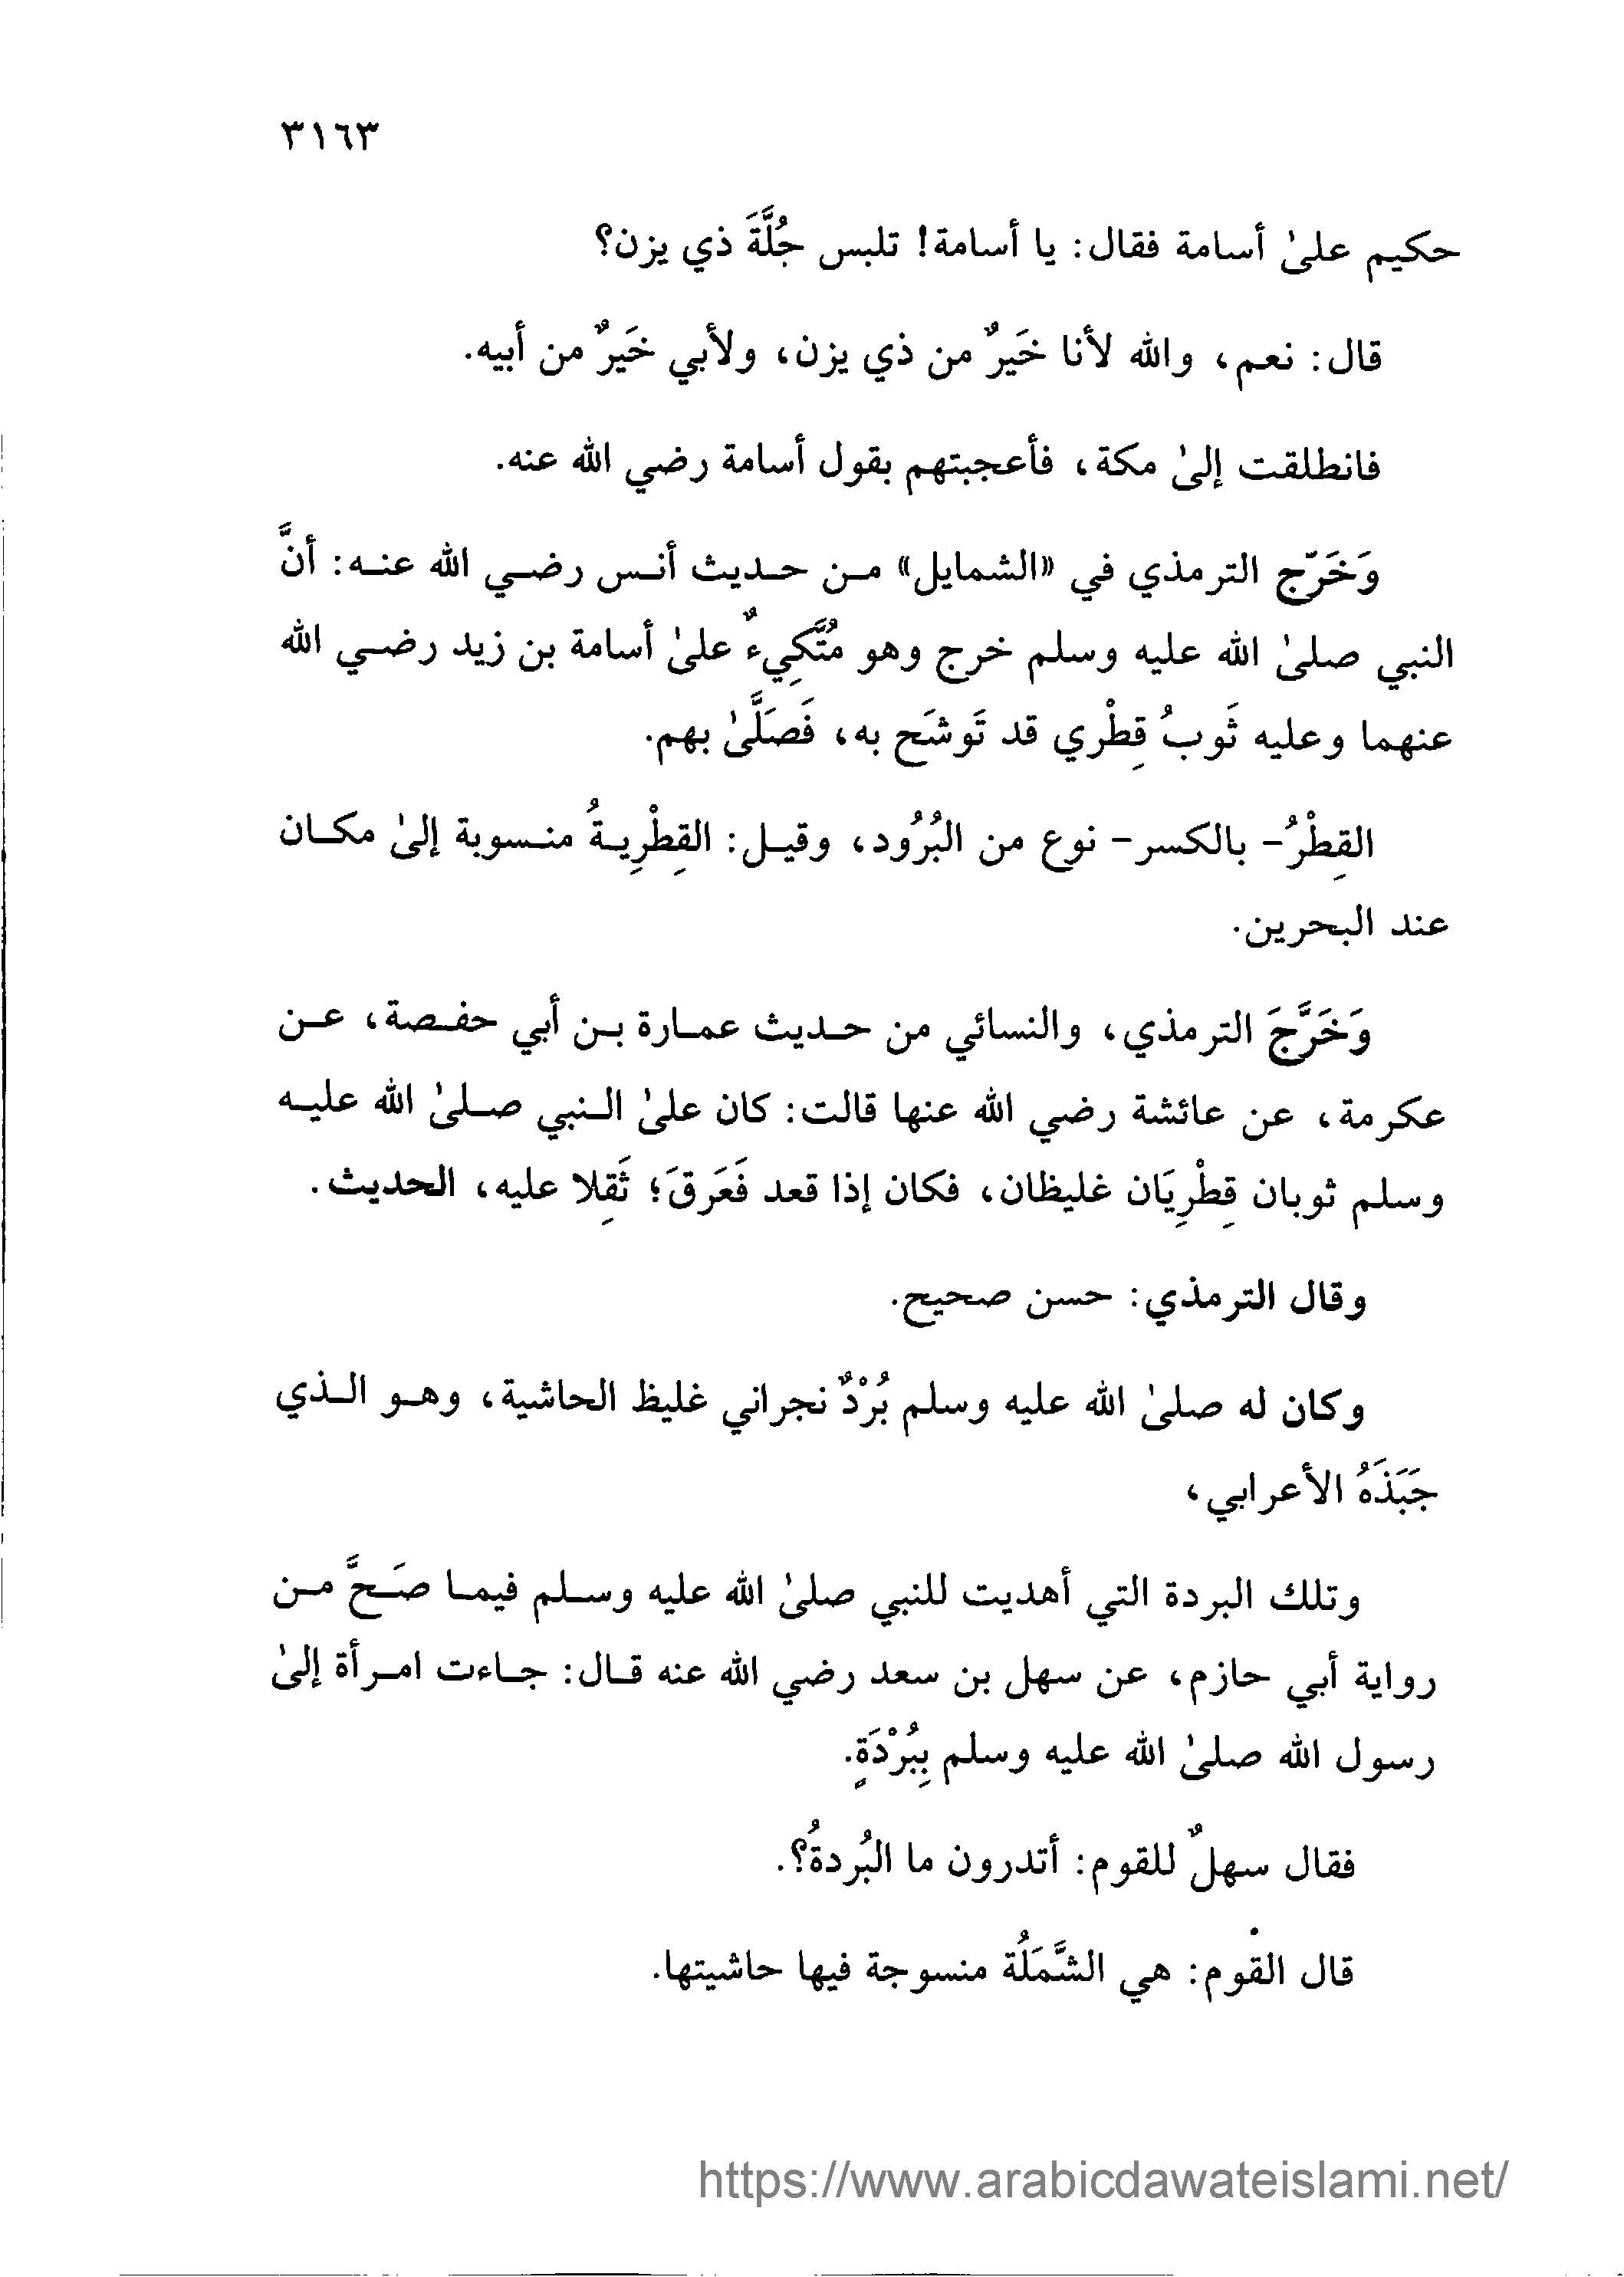 ٣١٦٣
حكيم علىٰ أسامة فقال: يا أسامة! تلبس حُلَّةَ ذي يزن؟
قال: نعم، والله لأنا خَيرٌ من ذي يزن، ولأبي خَيرٌ من أبيه.
فانطلقت إلىٰ مكة، فأعجبتهم بقول أسامة رضي الله عنه.
وَخَرّج الترمذي في «الشمايل» مـن حـديث أنـس رضـي الله عنـه: أنَّ
النبي صلىٰ الله عليه وسلم خرج وهو مُتَّكِيءٌ علىٰ أسامة بن زيد رضـي الله
عنهما وعليه ثَوبُ قِطْري قد تَوشَح به، فَصَلَّىٰ بهم.
القِطْرُ- بالكسر- نوع من البُرُود، وقيـل: القِطْرِيـةُ منـسوبة إلىٰ مكـان
عند البحرين.
وَخَرَّجَ الترمذي، والنسائي من حـديث عمـارة بـن أبي حفـصة، عـن
عكرمة، عن عائشة رضي الله عنها قالت: كان علىٰ الـنبي صـلىٰ الله عليـه
وسلم ثوبان قِطْرِيَان غليظان، فكان إذا قعد فَعَرَقَ؛ ثَقِلا عليه، الحديث.
وقال الترمذي: حسن صحيح.
وكان له صلىٰ الله عليه وسلم بُرْدٌ نجراني غليظ الحاشية، وهـو الـذي
جَبَذَهُ الأعرابي،
وتلك البردة التي أهديت للنبي صلىٰ الله عليه وسـلم فيمـا صَـحَّ مـن
رواية أبي حازم، عن سهل بن سعد رضي الله عنه قـال: جـاءت امـرأة إلىٰ
رسول الله صلىٰ الله عليه وسلم بِبُرْدَةٍ.
فقال سهلٌ للقوم: أتدرون ما البُردةُ؟.
قال القوم: هي الشَّمَلُة منسوجة فيها حاشيتها.
https://www.arabicdawateislami.net/